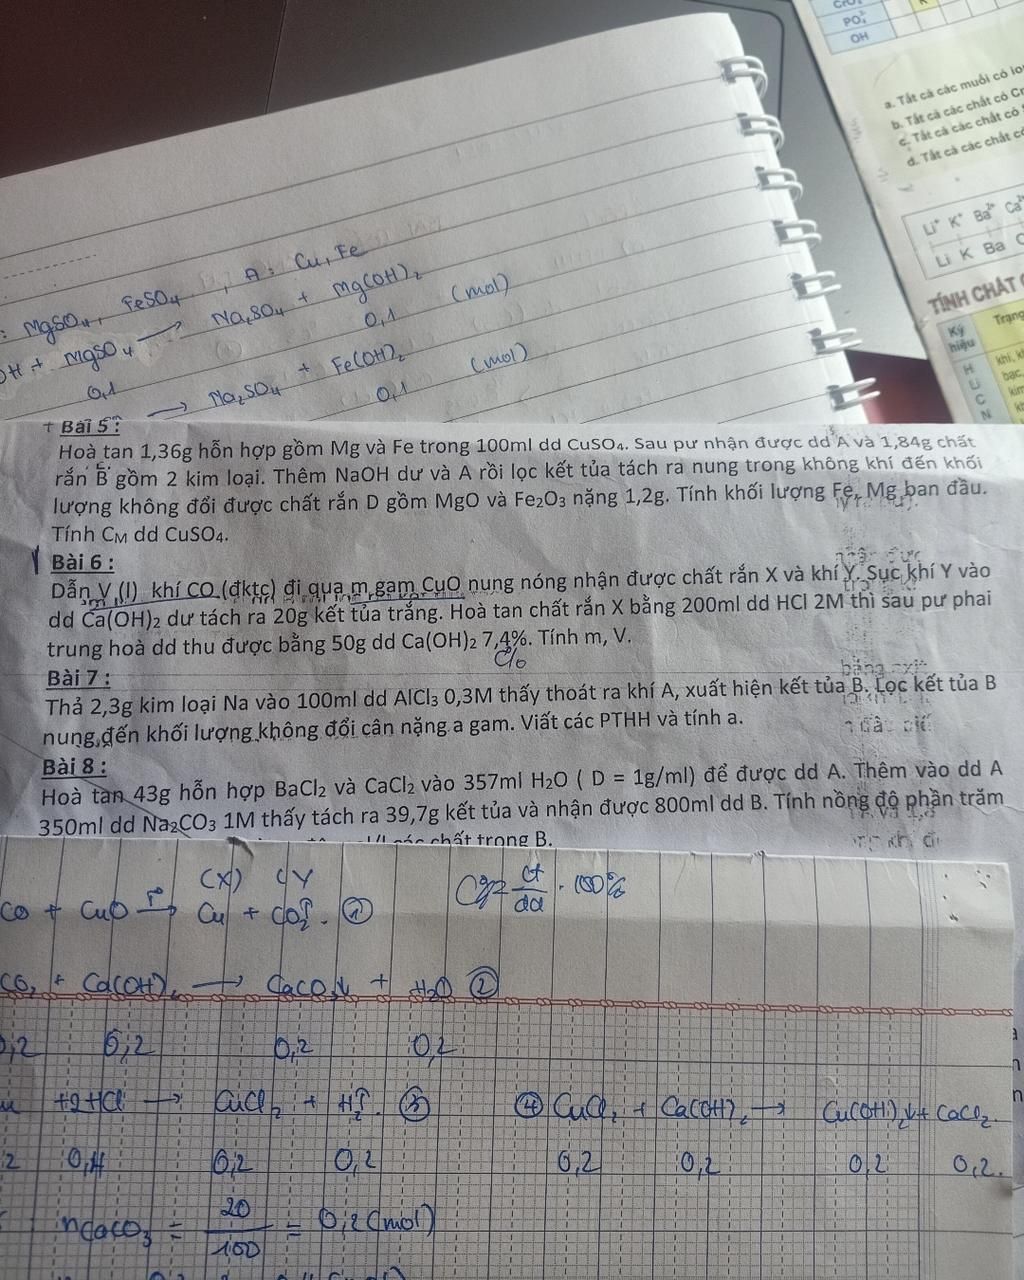 PO₄
OH
a. Tất cả các muối có
b. Tất cả các chất có
c. Tất cả các chất có
d. Tất cả các chất
Li⁺ K⁺ Ba²⁺ Ca²⁺
Li K Ba
TÍNH CHẤT
Ký hiệu
Trạng
H
Li
C
N
khí,
bạc,
MgSO₄, FeSO₄, A: Cu, Fe
OH + MgSO₄ → Na₂SO₄ + Mg(OH)₂
0,1 0,1 (mol)
→ Na₂SO₄ + Fe(OH)₂
0,1 (mol)
+ Bài 5 :
Hoà tan 1,36g hỗn hợp gồm Mg và Fe trong 100ml dd CuSO₄. Sau pư nhận được dd A và 1,84g chất
rắn B gồm 2 kim loại. Thêm NaOH dư và A rồi lọc kết tủa tách ra nung trong không khí đến khối
lượng không đổi được chất rắn D gồm MgO và Fe₂O₃ nặng 1,2g. Tính khối lượng Fe, Mg ban đầu.
Tính Cᴍ dd CuSO₄.
Bài 6 :
Dẫn V (l) khí CO (đktc) đi qua m gam CuO nung nóng nhận được chất rắn X và khí Y. Sục khí Y vào
dd Ca(OH)₂ dư tách ra 20g kết tủa trắng. Hoà tan chất rắn X bằng 200ml dd HCl 2M thì sau pư phai
trung hoà dd thu được bằng 50g dd Ca(OH)₂ 7,4%. Tính m, V.
C%
Bài 7 :
Thả 2,3g kim loại Na vào 100ml dd AlCl₃ 0,3M thấy thoát ra khí A, xuất hiện kết tủa B. Lọc kết tủa B
nung đến khối lượng không đổi cân nặng a gam. Viất các PTHH và tính a.
Bài 8 :
Hoà tan 43g hỗn hợp BaCl₂ và CaCl₂ vào 357ml H₂O ( D = 1g/ml) để được dd A. Thêm vào dd A
350ml dd Na₂CO₃ 1M thấy tách ra 39,7g kết tủa và nhận được 800ml dd B. Tính nồng độ phần trăm
các chất trong B.
(X) (Y
CO + CuO →t° Cu + CO₂↑. ①
C%= ct/dd . 100%
CO₂ + Ca(OH)₂ → CaCO₃↓ + H₂O ②
0,2 0,2 0,2 0,2
+2HCl → CuCl₂ + H₂↑. ③
④ CuCl₂ + Ca(OH)₂ → Cu(OH)₂↓ + CaCl₂.
2 0,4 0,2 0,2
0,2 0,2 0,2 0,2.
nCaCO₃ = 20/100 = 0,2 (mol)